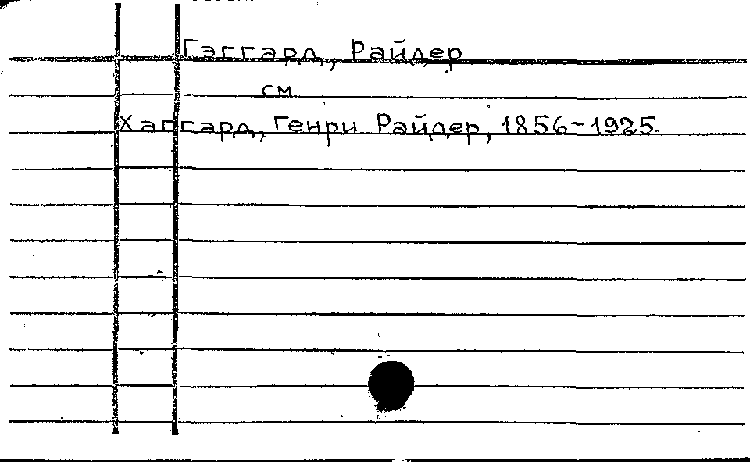 Гаггард, Райдер
см
Хаггард, Генри Райдер, 1856-1925.